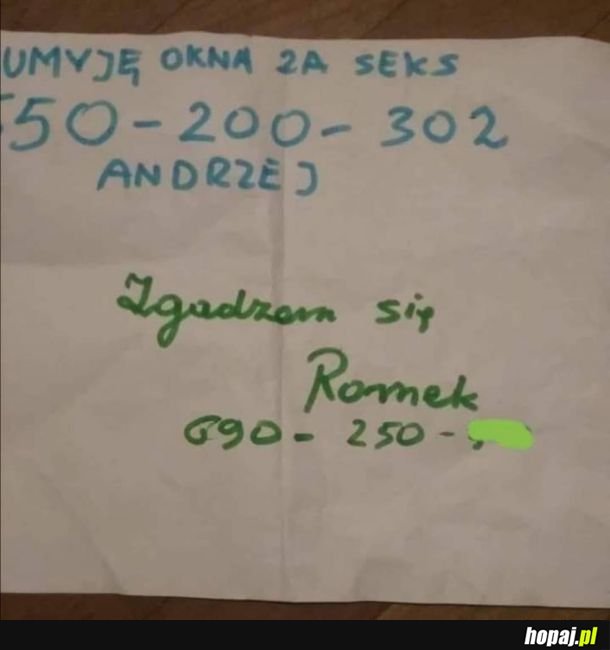 UMYJĘ OKNA ZA SEKS
550-200-302
ANDRZEJ
Zgadzam się
Romek
690-250-
hopaj.pl